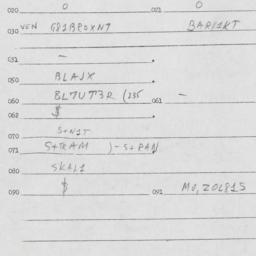 020 0 021 0
030 VEN G81BP0XNT BAR1KT
031 -
050 BLAJX
060 BL7UT3R (235 061 -
062 $
070 S+N1T
071 S+RAM )-S+PAN
080 SKAL1
090 $ 091 M0,20L815